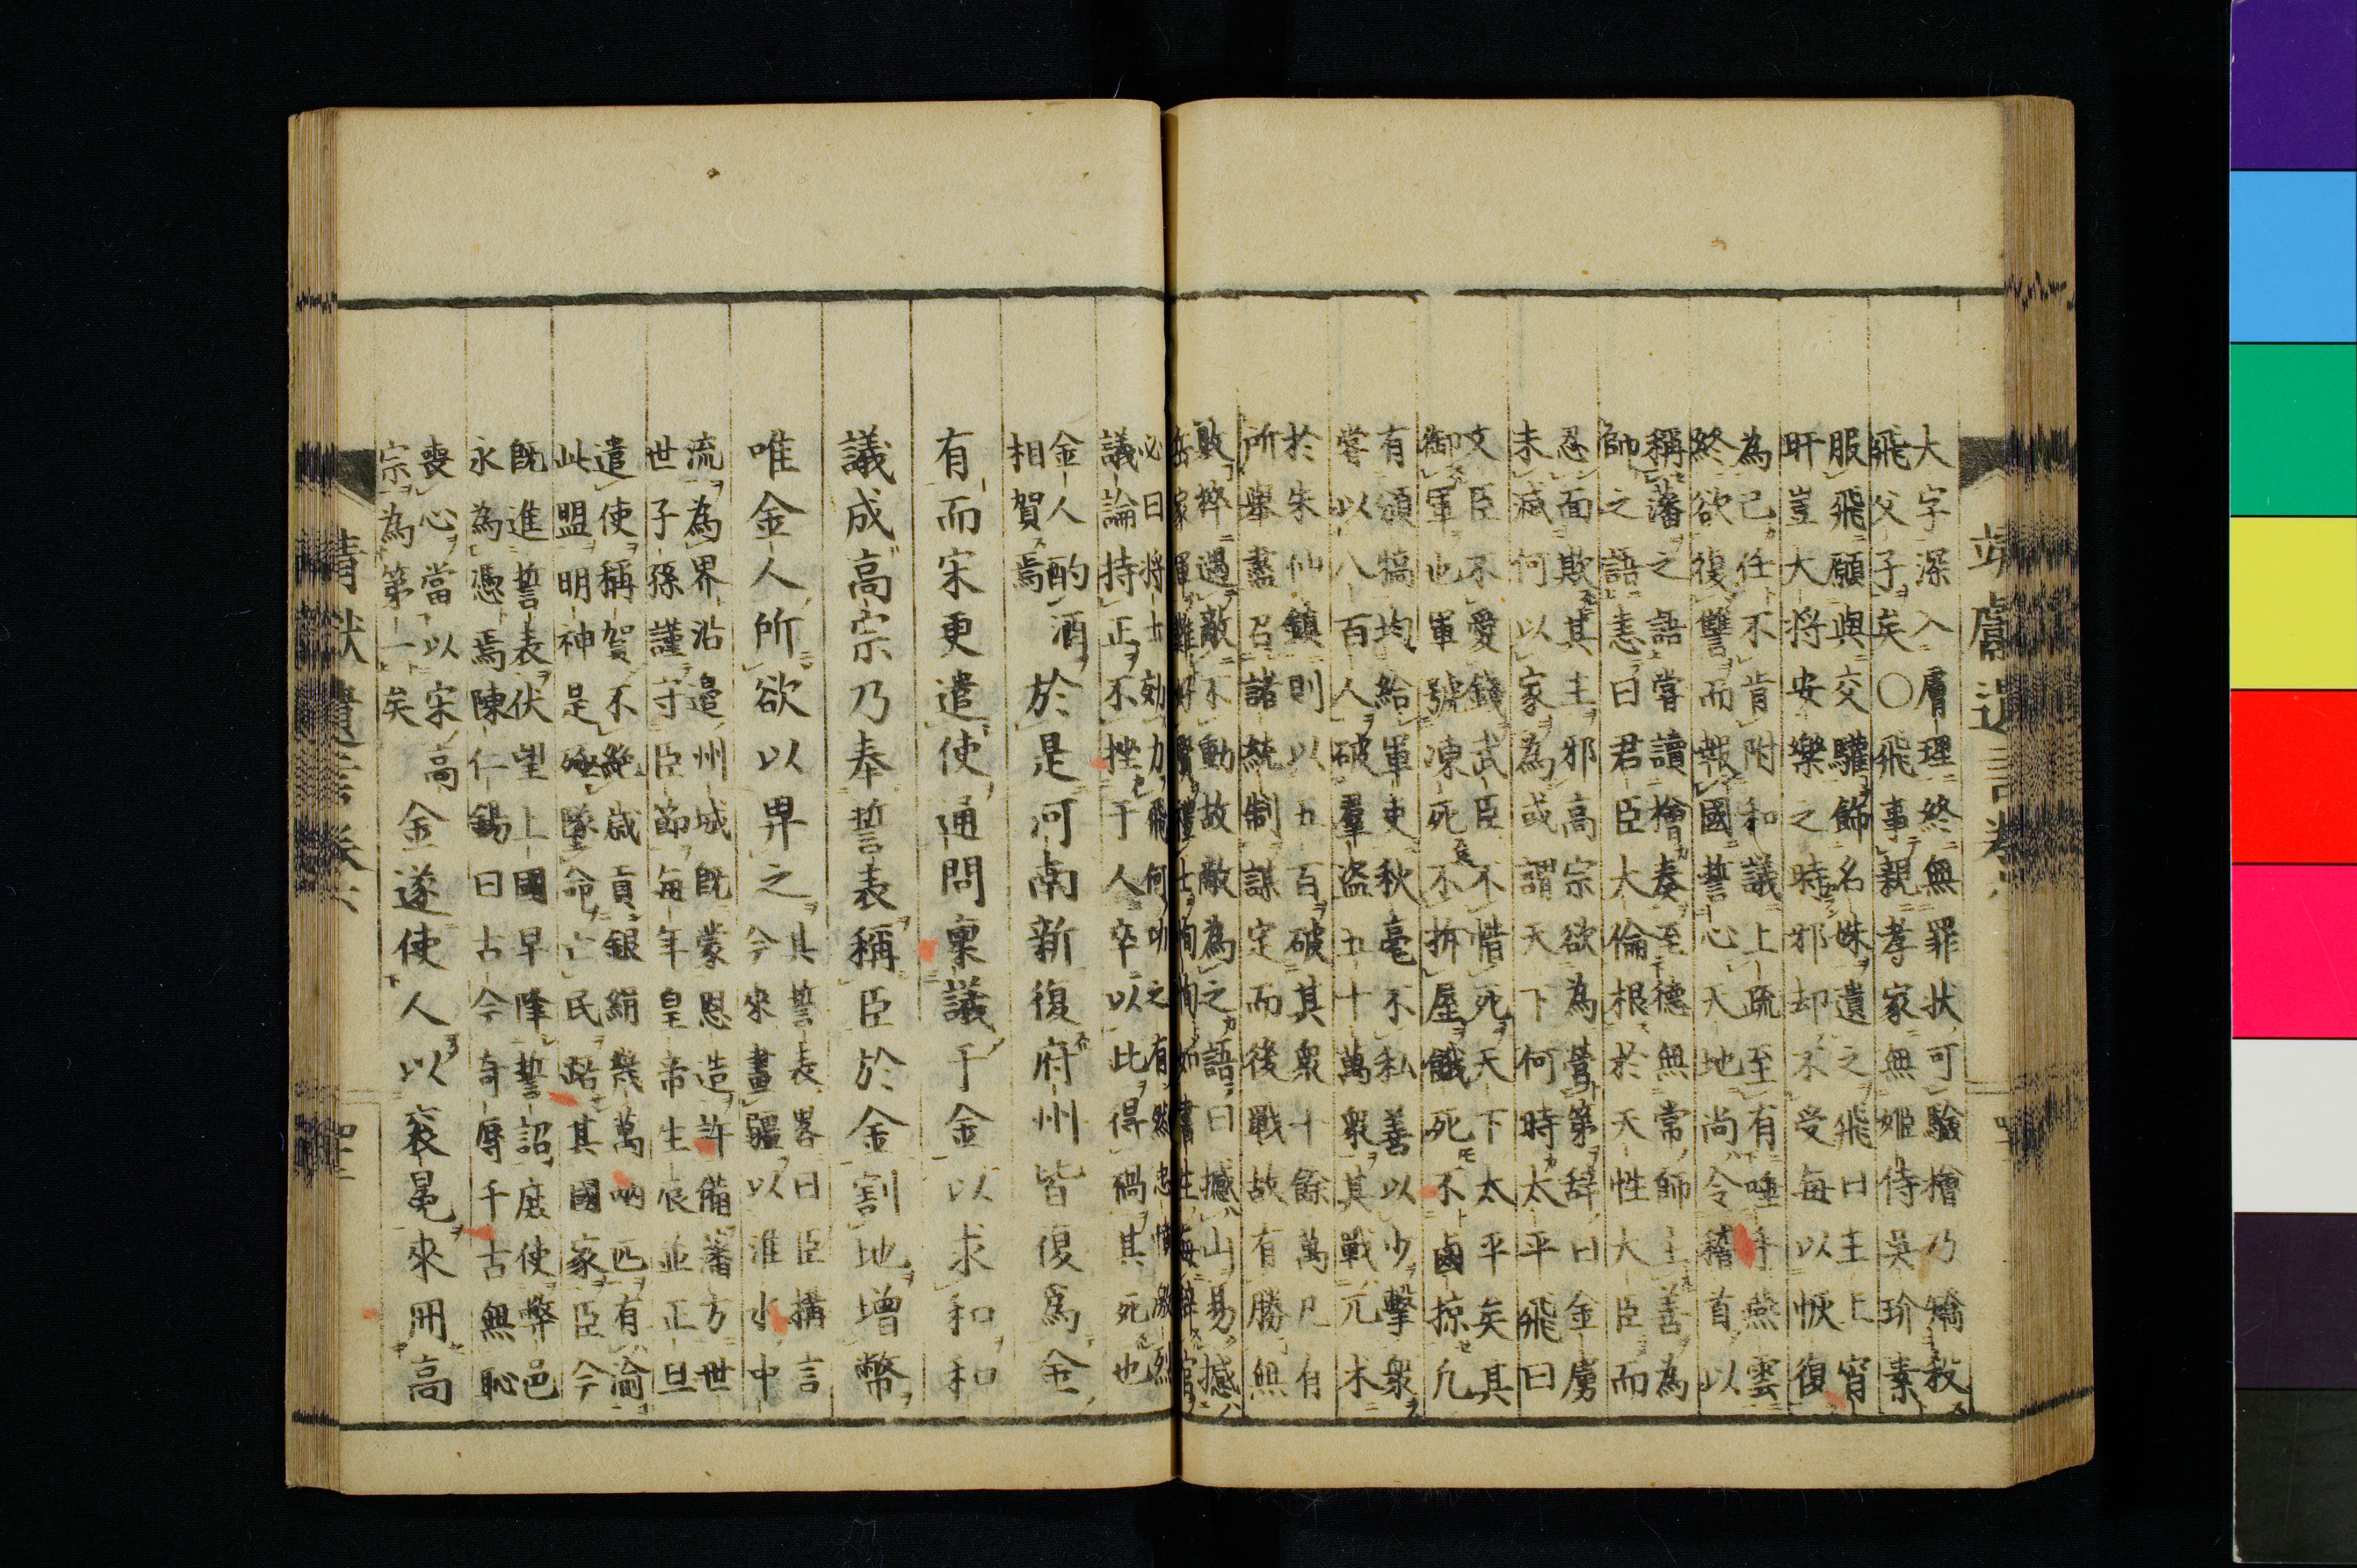 大字深入膚理終無罪状可驗檜乃矯殺
飛父子矣○飛事親孝家無姬侍吳玠素
服飛願與交驩飾名姝遺之飛曰主上宵
旰豈大將安樂之時邪却不受每以恢復
為己任不肯附和議上疏至有唾手燕雲
終欲復讐而報國誓心天地尚令稽首以
稱藩之語嘗讀檜奏至德無常師主善為
師之語恚曰君臣大倫根於天性大臣而
忍面欺其主邪高宗欲為營第辞曰金虜
未滅何以家為或謂天下何時太平飛曰
文臣不愛錢武臣不惜死天下太平矣其
御軍也軍號凍死不拆屋餓死不鹵掠凡
有頒犒均給軍吏秋毫不私善以少擊衆
嘗以八百人破羣盗五十萬衆其戰兀朮
於朱仙鎮則以五百破其衆十餘萬凡有
所舉盡召諸統制謀定而後戰故有勝無
敗猝遇敵不動故敵為之語曰撼山易撼
岳家軍難好賢禮士恂恂如書生每辞官
必曰將士効力飛何功之有然忠憤激烈
議論持正不挫于人卒以此得禍其死也
金人酌酒
相賀焉
於是河南新復府州皆復爲金
有而宋更遣使通問稟議于金以求和和
議成高宗乃奉誓表稱臣於金割地增幣
唯金人所欲以畀之
其誓表畧曰臣構言
今來畫疆以淮水中
流為界沿邉州城既蒙恩造許備藩方世
世子孫謹守臣節每年皇帝生辰並正旦
遣使稱賀不絶歲貢銀絹幾萬两匹有渝
此盟明神是殛墜命亡民踣其國家臣今
既進誓表伏望上國早降誓詔庻使弊邑
永為憑焉陳仁錫曰古今奇辱千古無恥
喪心當以宋高
宗為第一矣
金遂使人以袞冕來册高